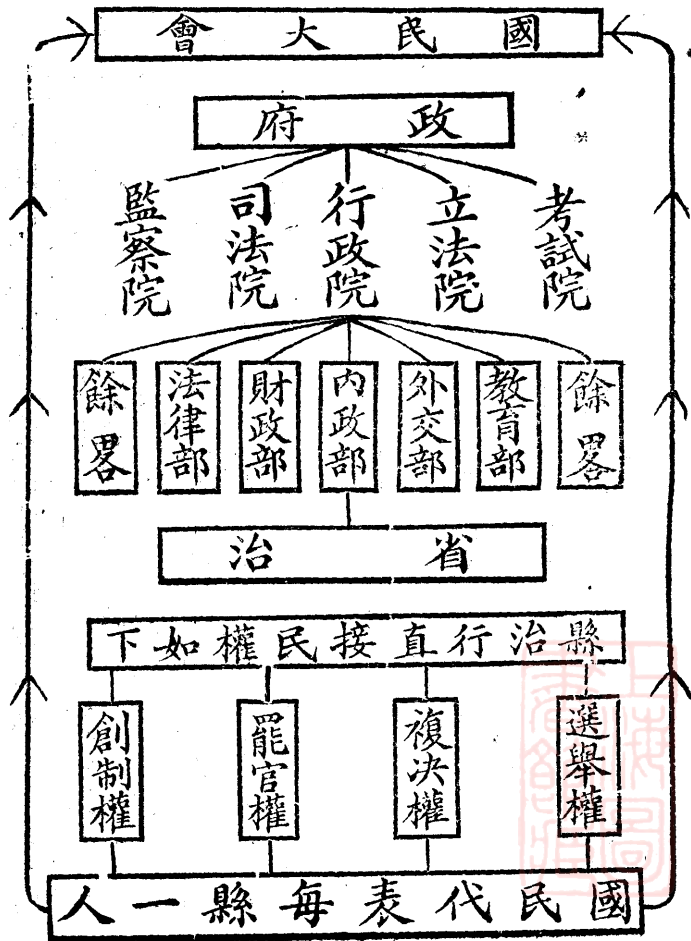 國民大會
政府
考試院
立法院
行政院
司法院
監察院
餘畧
教育部
外交部
內政部
財政部
法律部
餘畧
省治
縣治行直接民權如下
選舉權
複決權
罷官權
創制權
國民代表每縣一人